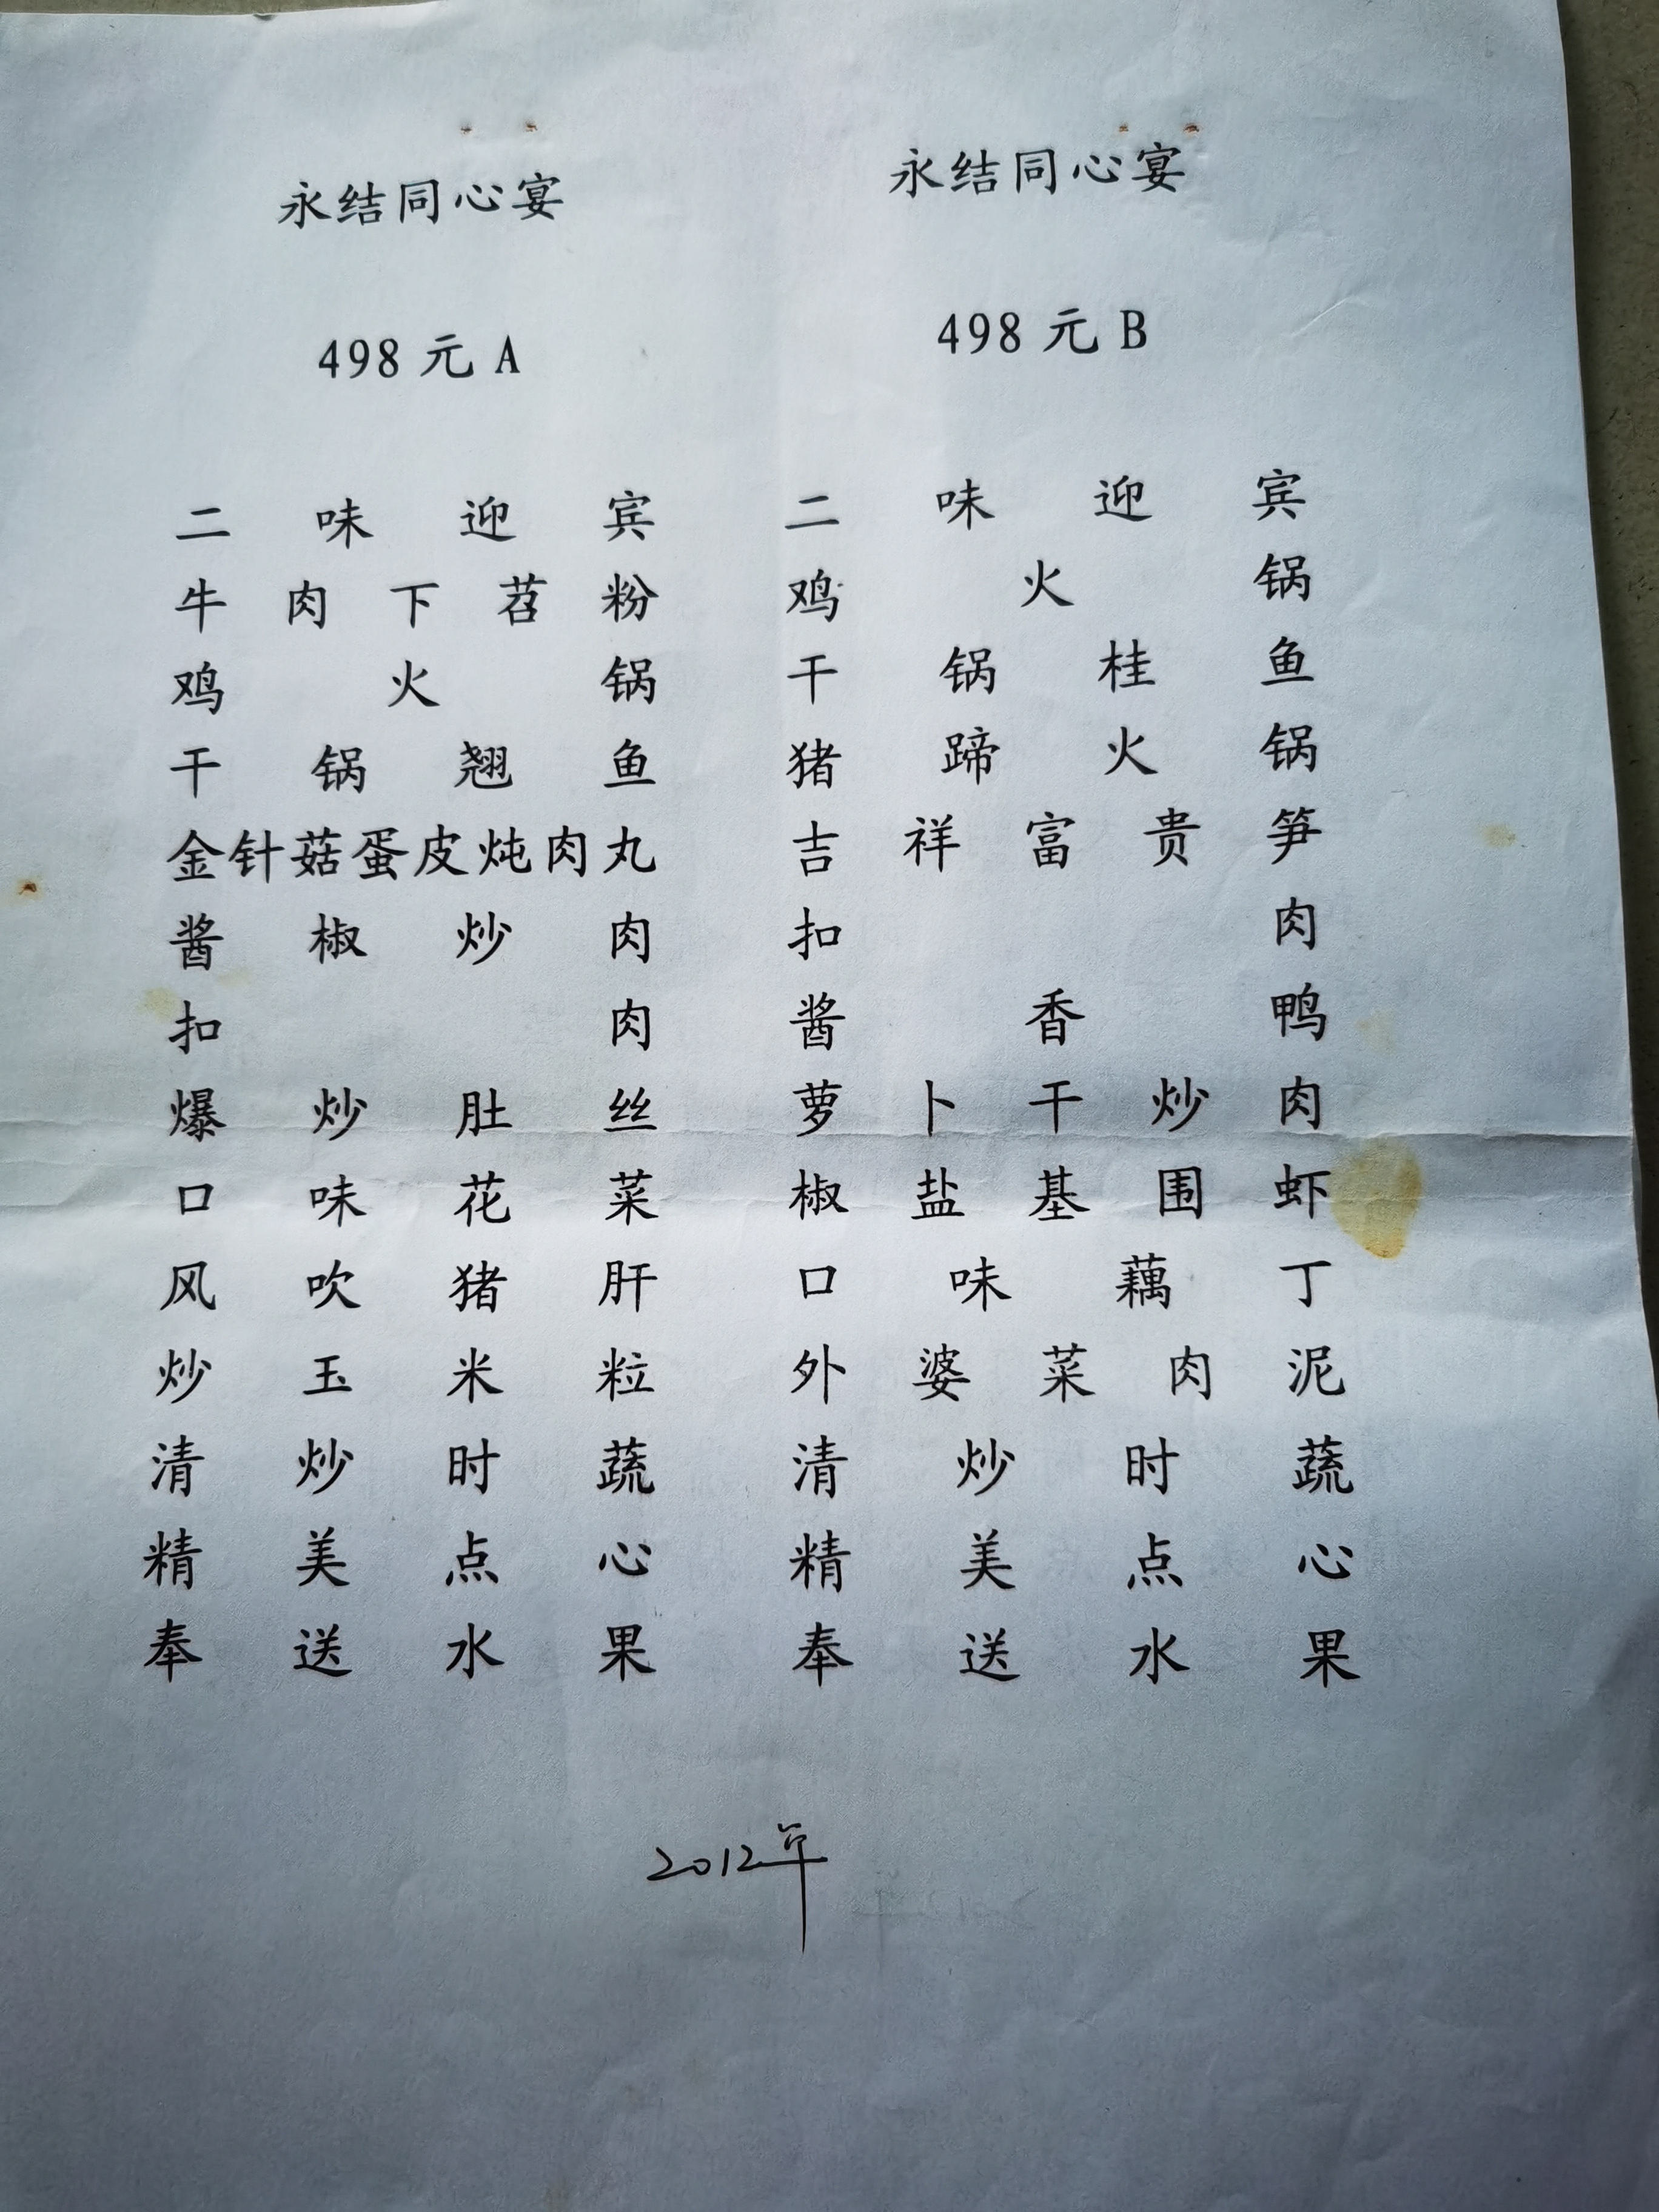 永结同心宴
498元A
二味迎宾
牛肉下苕粉
鸡火锅
干锅翘鱼
金针菇蛋皮炖肉丸
酱椒炒肉
扣肉
爆炒肚丝
口味花菜
风吹猪肝
炒玉米粒
清炒时蔬
精美点心
奉送水果
永结同心宴
498元B
二味迎宾
鸡火锅
干锅桂鱼
猪蹄火锅
吉祥富贵笋
扣肉
酱香鸭
萝卜干炒肉
椒盐基围虾
口味藕丁
外婆菜肉泥
清炒时蔬
精美点心
奉送水果
2012年